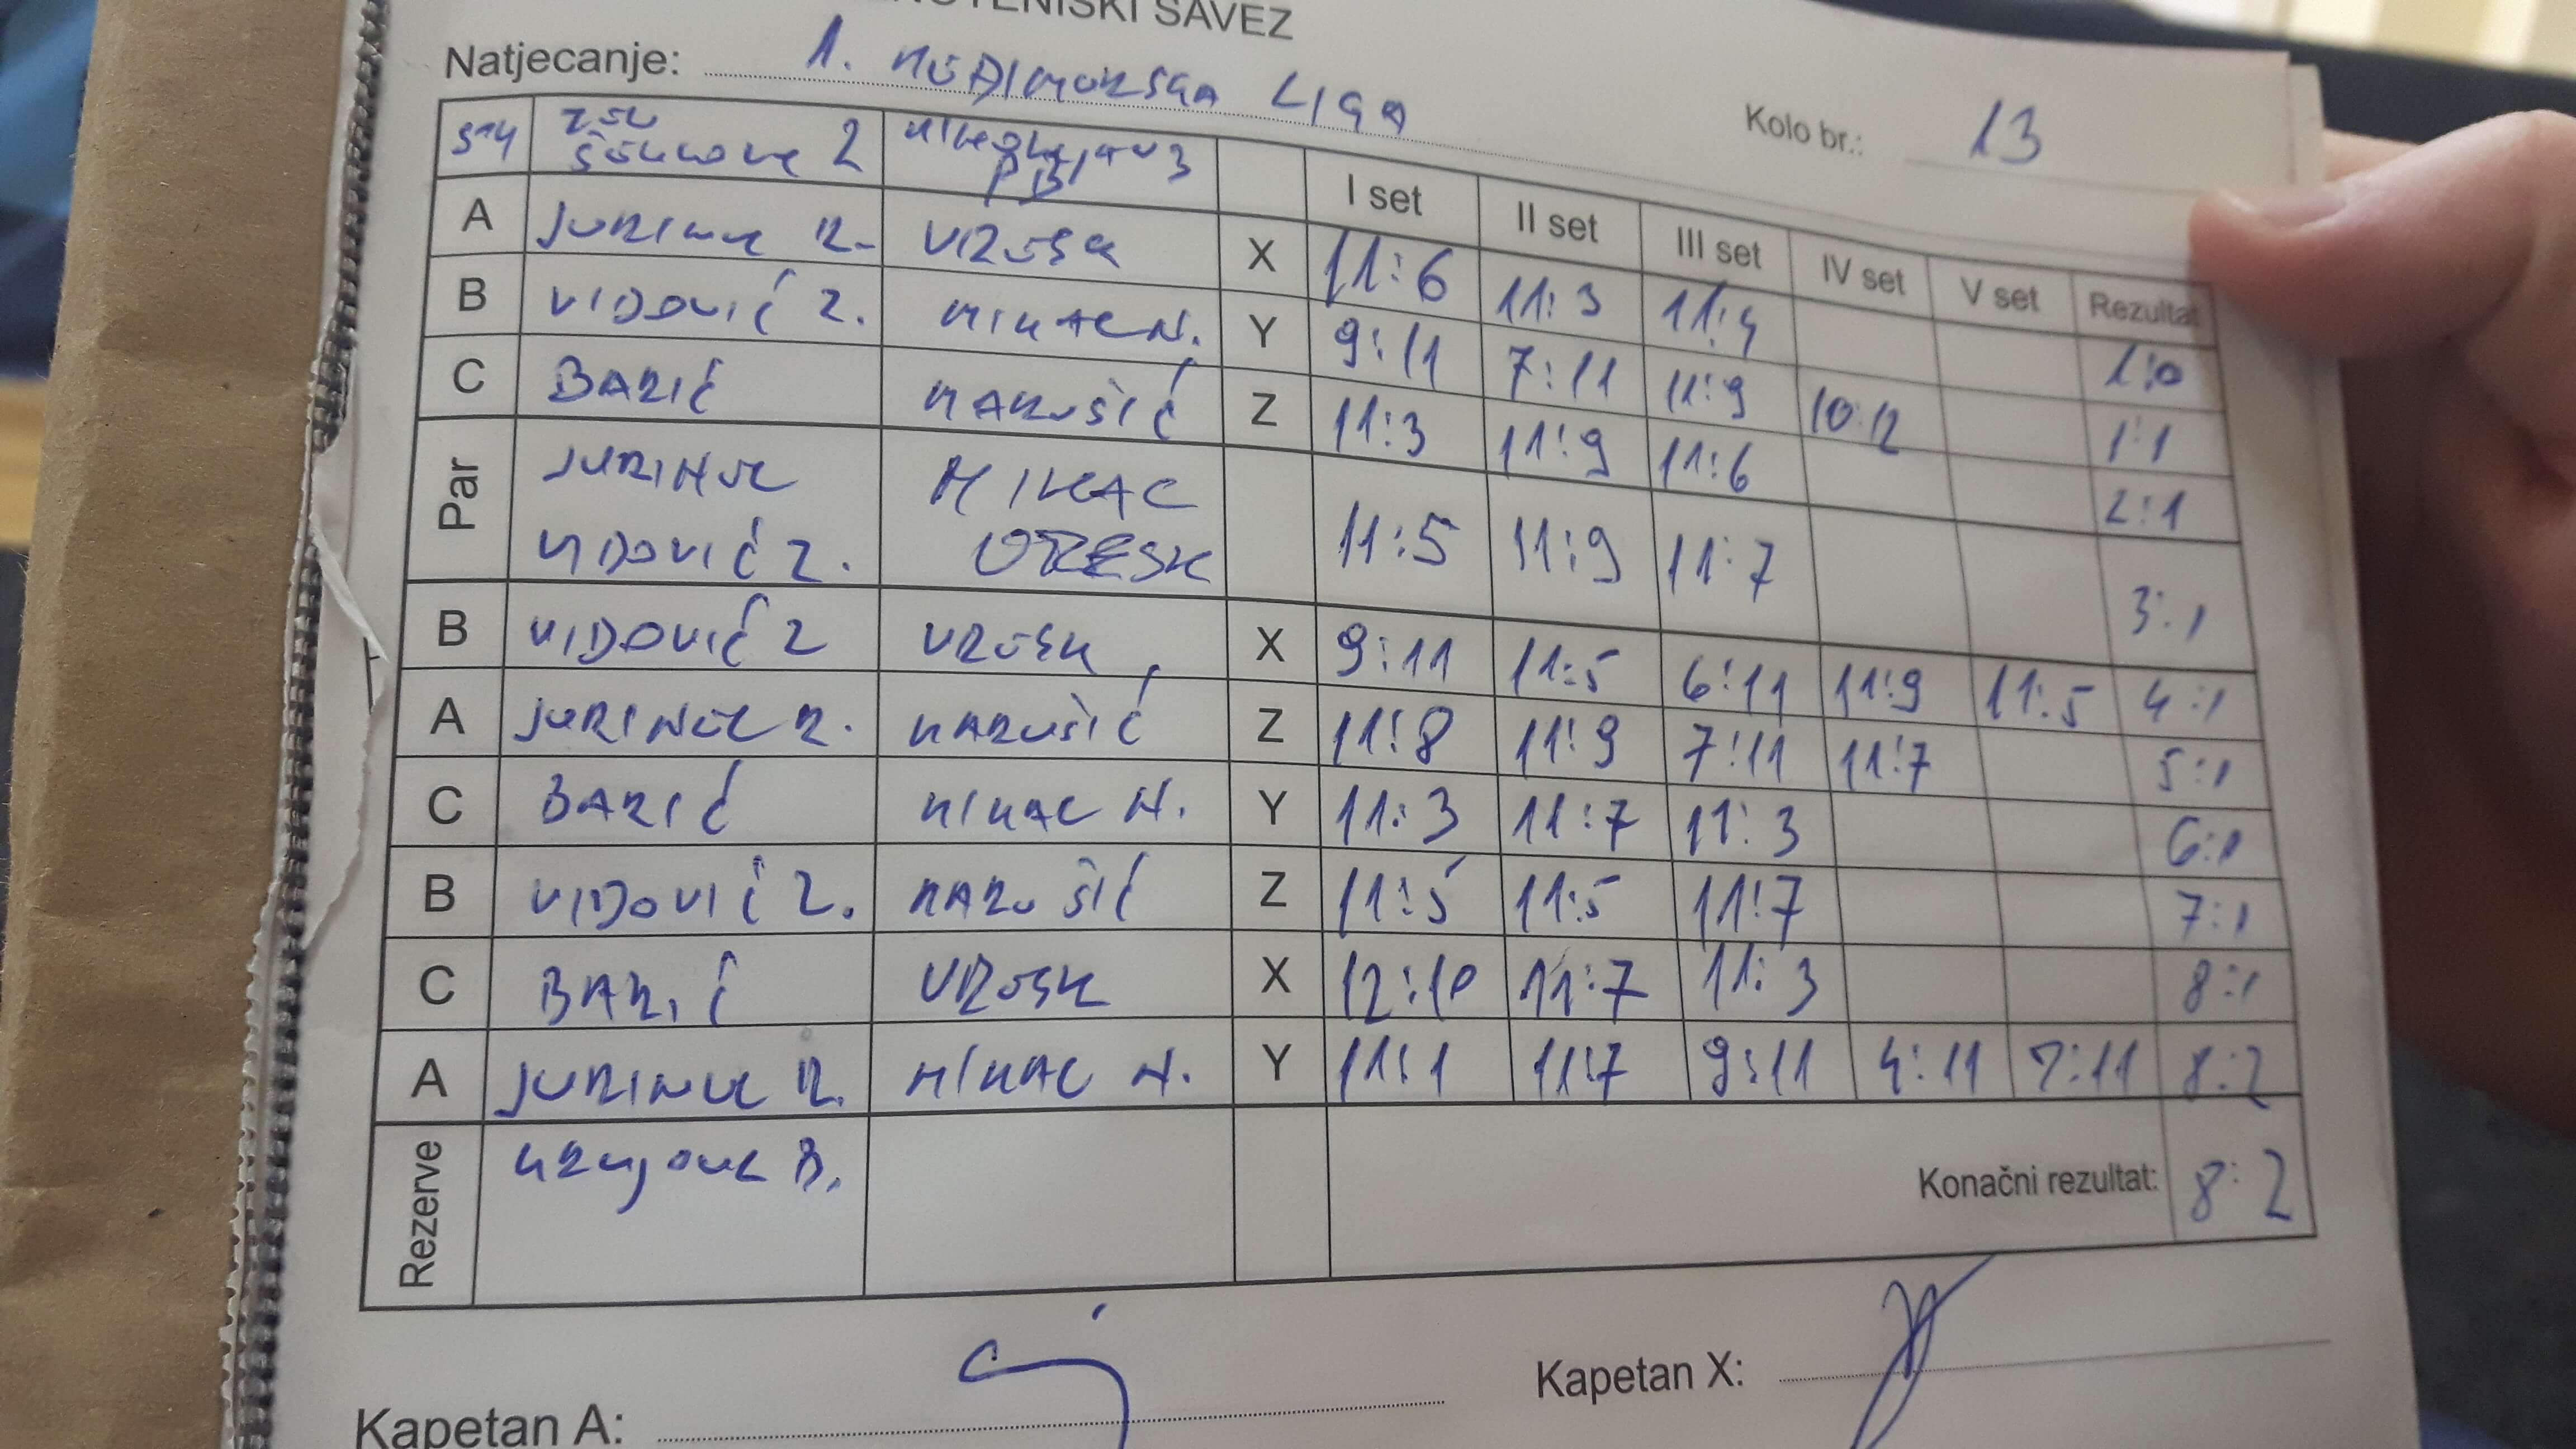 SAVEZ
Natjecanje: 1. MEĐIMURSKA LIGA
Kolo br.: 13
I set II set III set IV set V set Rezultat
A JURINEC R. VRESK X 11:6 11:3 11:4 1:0
B VIDOVIĆ Z. MIKAC N. Y 9:11 7:11 11:9 10:12 1:1
C BARIĆ MARUŠIĆ Z 11:3 11:9 11:6 2:1
Par JURINEC MIKAC
VIDOVIĆ Z. VRESK 11:5 11:9 11:7 3:1
B VIDOVIĆ Z VRESK X 9:11 11:5 6:11 11:9 11:5 4:1
A JURINEC R. MARUŠIĆ Z 11:8 11:9 7:11 11:7 5:1
C BARIĆ MIKAC N. Y 11:3 11:7 11:3 6:1
B VIDOVIĆ Z. MARUŠIĆ Z 11:5 11:5 11:7 7:1
C BARIĆ VRESK X 12:10 11:7 11:3 8:1
A JURINEC R. MIKAC N. Y 11:1 11:7 9:11 4:11 7:11 8:2
Rezerve B.
Konačni rezultat: 8:2
Kapetan A: Kapetan X: